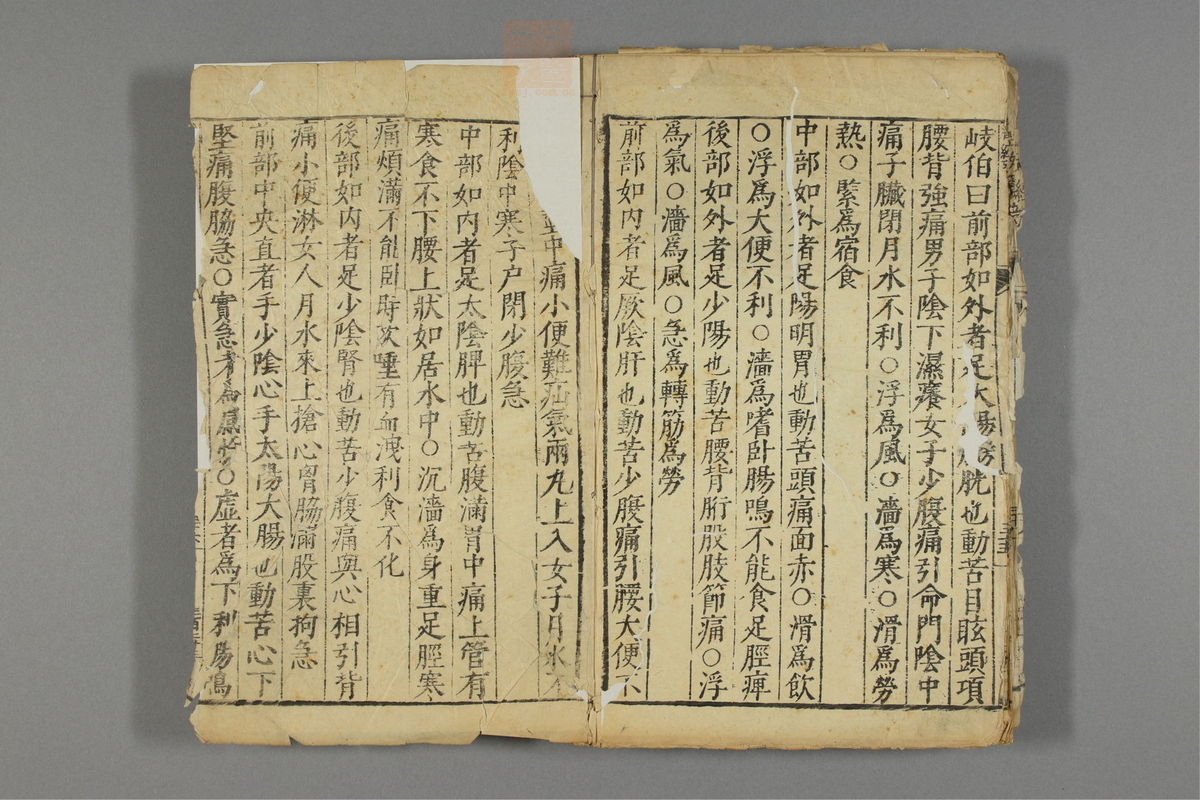 岐伯曰前部如外者足太陽膀胱也動苦目眩頭項
腰背強痛男子陰下濕癢女子少腹痛引命門陰中
痛子臟閉月水不利〇浮爲風〇濇爲寒〇滑爲勞
熱〇緊爲宿食
中部如外者足陽明胃也動苦頭痛面赤〇滑爲飮
〇浮爲大便不利〇濇爲嗜卧腸鳴不能食足脛痺
後部如外者足少陽也動苦腰背胻股肢節痛〇浮
爲氣〇濇爲風〇急爲轉筋爲勞
前部如内者足厥陰肝也動苦少腹痛引腰大便不
中痛小便難疝氣兩丸上入女子月水不
利陰中寒子户閉少腹急
中部如内者足太陰脾也動苦腹滿胃中痛上管有
寒食不下腰上狀如居水中〇沉濇爲身重足脛寒
痛煩滿不能卧時欬唾有血洩利食不化
後部如内者足少陰腎也動苦少腹痛與心相引背
痛小便淋女人月水來上搶心胷脇滿股裏拘急
前部中央直者手少陰心手太陽大腸也動苦心下
堅痛腹脇急〇實急者爲感〇虛者爲下利腸鳴